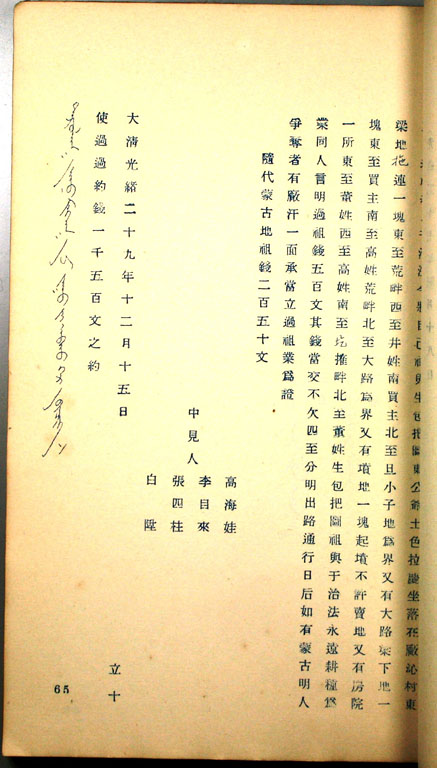 梁地拖連一塊東至荒畔西至井姓南買主北至旦小子地為界又有大路梁下地一
塊東至買主南至高姓荒畔北至大路為界又有墳地一塊起墳不許賣地又有房院
一所東至董姓西至高姓南至圪推畔北至董姓生包把圖祖與于治法永遠耕種為
業同人言明過祖錢五百文其錢當交不欠四至分明出路通行日后如有蒙古明人
爭奪者有厰汗一面承當立過祖業為證
隨代蒙古地祖錢二百五十文
中見人
高海娃
李目來
張四柱
白陞
大清光緒二十九年十二月十五日
使過過約錢一千五百文之約
立十
65